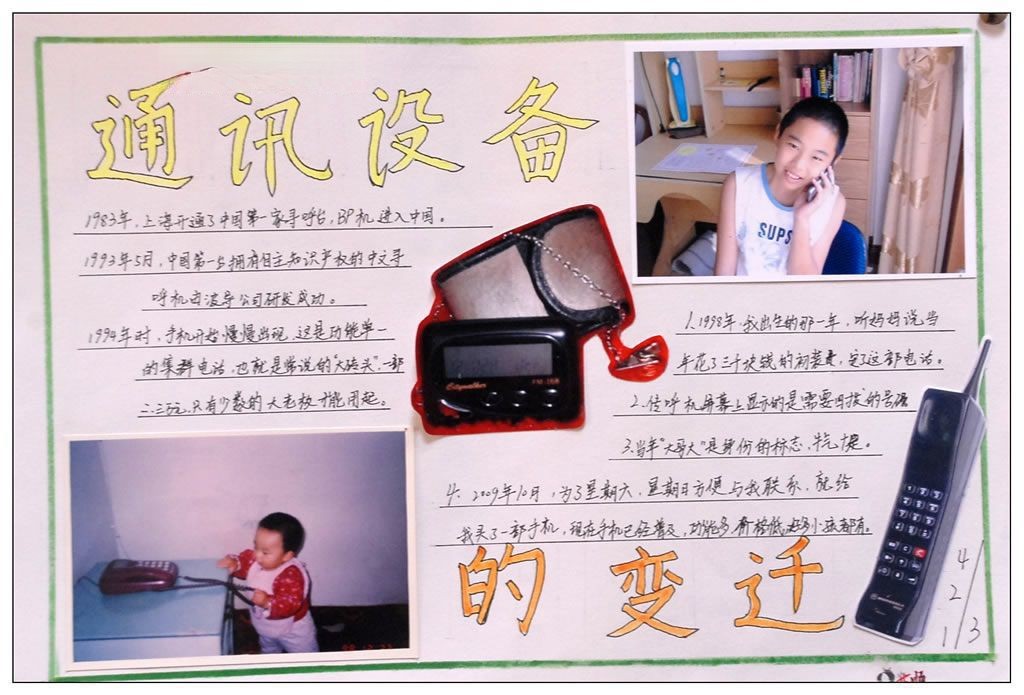 通讯设备
1983年,上海开通了中国第一家寻呼台,BP机进入中国。
1993年5月,中国第一台拥有自主知识产权的中文寻
呼机由波导公司研发成功。
1994年时,手机开始慢慢出现,这是功能单一
的集群电话,也就是常说的“大砖头”,一部
二、三万元,只有少数的大老板才能用起。
SUPS
Citywalker
FM-168
1.1998年,我出生的那一年,听妈妈说当
年花了三千块钱的初装费,定了这部电话。
2.传呼机屏幕上显示的是需要回拨的号码
3.当年“大哥大”是身份的标志,牛气
4.2009年10月,为了星期六、星期日方便与我联系,就给
我买了一部手机,现在手机已经普及,功能多,价格低,好多小孩都有。
的变迁
MOTOROLA
4
2
1/3